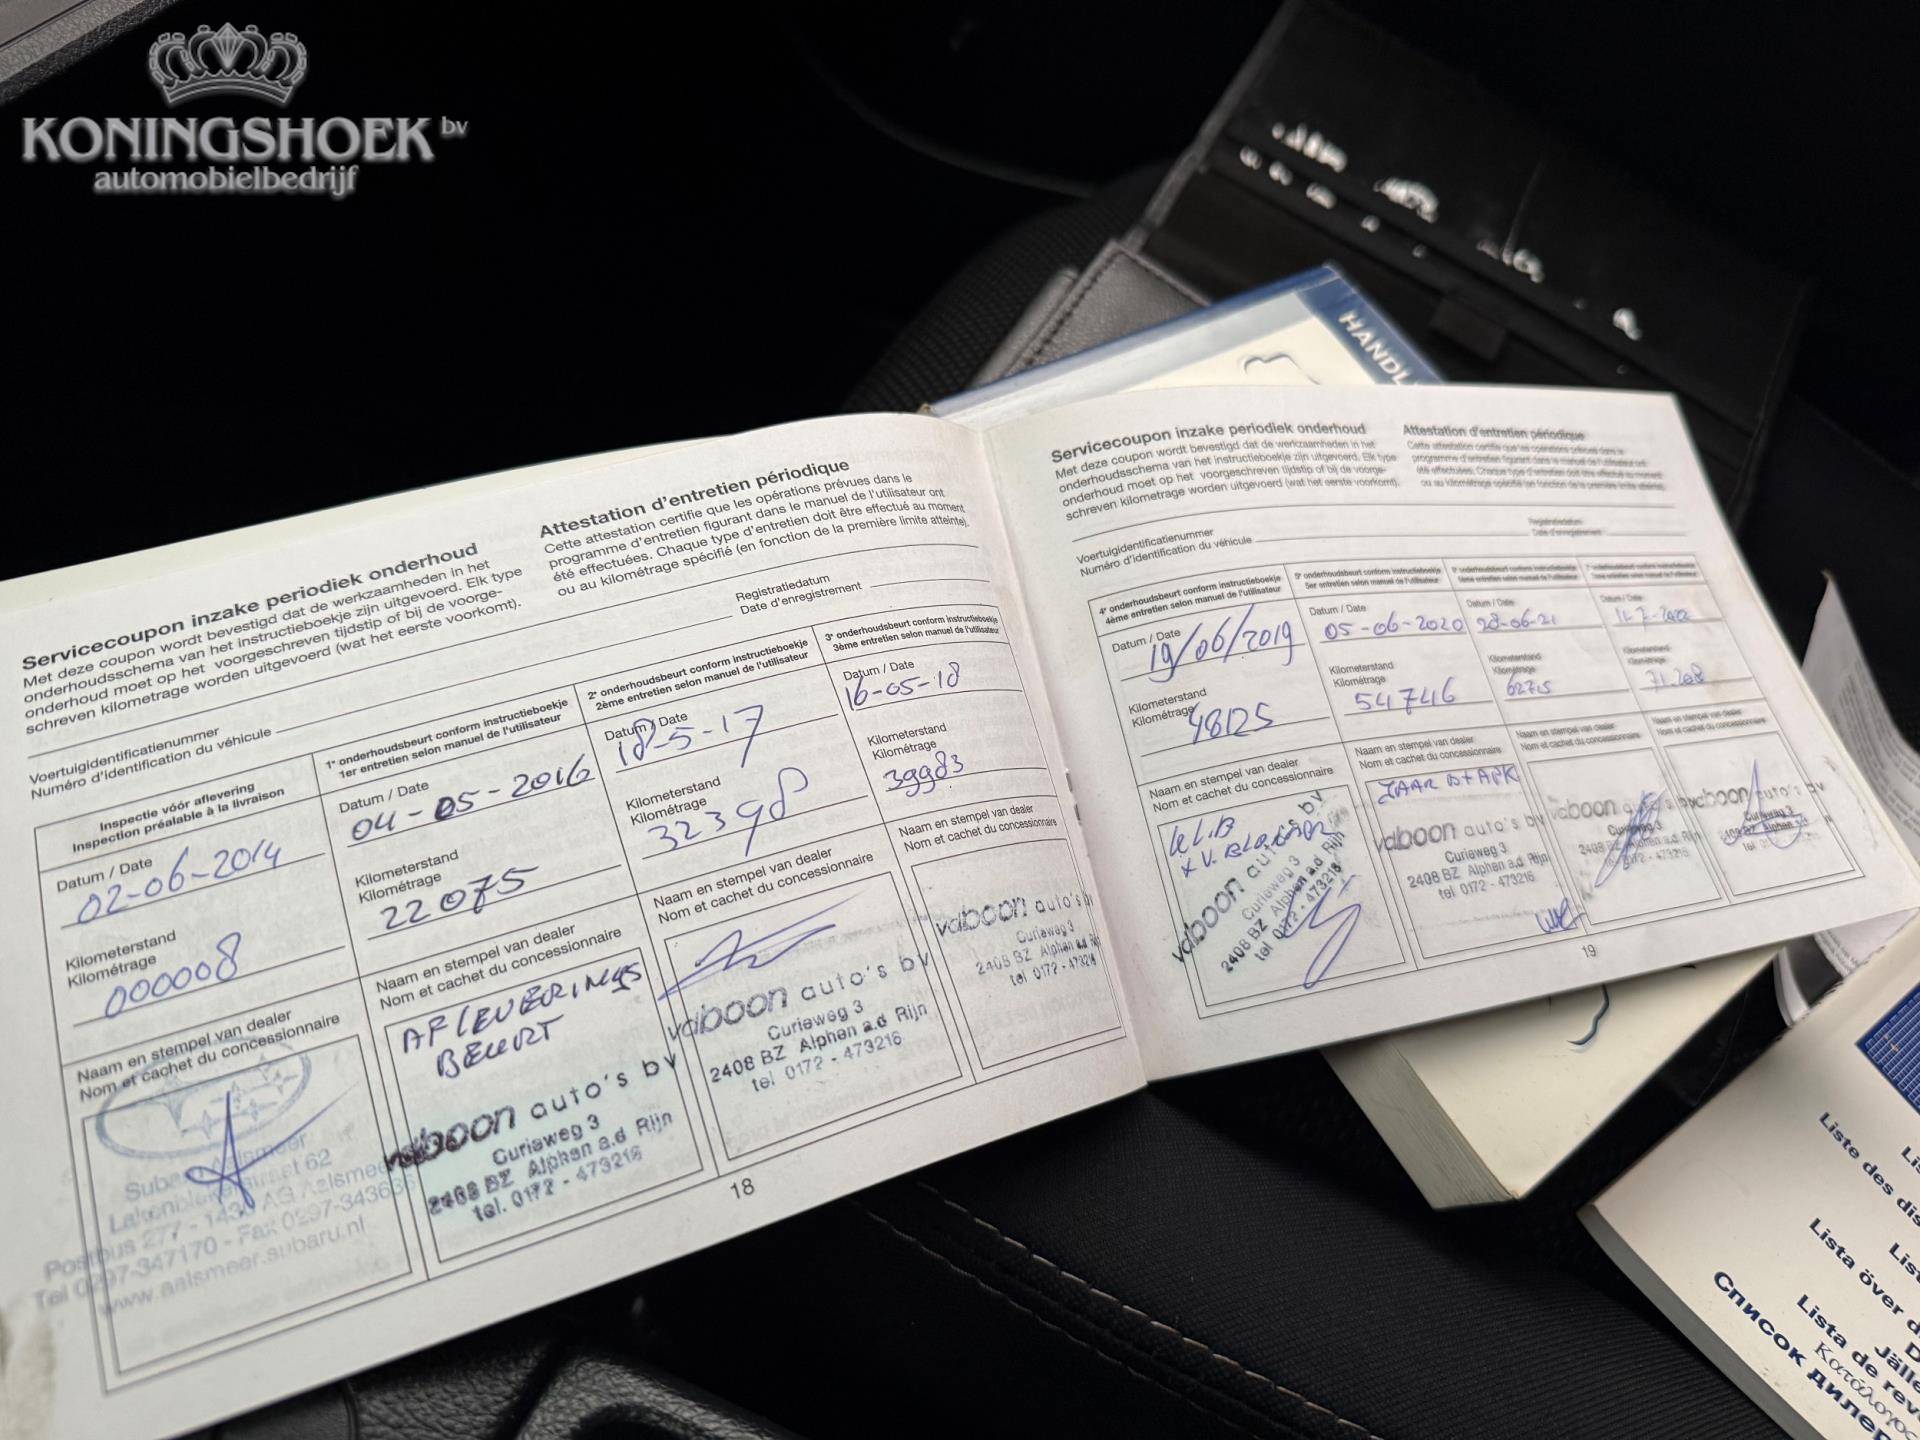 KONINGSHOEK bv
automobielbedrijf
HANDL
Servicecoupon inzake periodiek onderhoud
Met deze coupon wordt bevestigd dat de werkzaamheden in het
onderhoudsschema van het instructieboekje zijn uitgevoerd. Elk type
onderhoud moet op het voorgeschreven tijdstip of bij de voorge-
schreven kilometrage worden uitgevoerd (wat het eerste voorkomt).
Attestation d'entretien périodique
Cette attestation certifie que les opérations prévues dans le
programme d'entretien figurant dans le manuel de l'utilisateur ont
été effectuées. Chaque type d'entretien doit être effectué au moment
ou au kilométrage spécifié (en fonction de la première limite atteinte).
Voertuigidentificatienummer
Numéro d'identification du véhicule
Registratiedatum
Date d'enregistrement
Inspectie vóór aflevering
Inspection préalable à la livraison
Datum / Date
02-06-2014
Kilometerstand
Kilométrage
000008
Naam en stempel van dealer
Nom et cachet du concessionnaire
Subaru Aalsmeer
62
Postbus 277 - 1430 AG Aalsmeer
Tel 0297-347170 - Fax 0297-343636
www.aalsmeer.subaru.nl
1e onderhoudsbeurt conform instructieboekje
1er entretien selon manuel de l'utilisateur
Datum / Date
04-05-2016
Kilometerstand
Kilométrage
22075
Naam en stempel van dealer
Nom et cachet du concessionnaire
AFLEVERINGS
BEURT
vdboon auto's bv
Curieweg 3
2408 BZ Alphen a.d Rijn
tel. 0172 - 473216
2e onderhoudsbeurt conform instructieboekje
2ème entretien selon manuel de l'utilisateur
Datum / Date
18-5-17
Kilometerstand
Kilométrage
32398
Naam en stempel van dealer
Nom et cachet du concessionnaire
vdboon auto's bv
Curieweg 3
2408 BZ Alphen a.d Rijn
tel 0172 - 473216
3e onderhoudsbeurt conform instructieboekje
3ème entretien selon manuel de l'utilisateur
Datum / Date
16-05-18
Kilometerstand
Kilométrage
39983
Naam en stempel van dealer
Nom et cachet du concessionnaire
vdboon auto's bv
Curieweg 3
2408 BZ Alphen a.d Rijn
tel 0172 - 473216
18
Servicecoupon inzake periodiek onderhoud
Met deze coupon wordt bevestigd dat de werkzaamheden in het
onderhoudsschema van het instructieboekje zijn uitgevoerd. Elk type
onderhoud moet op het voorgeschreven tijdstip of bij de voorge-
schreven kilometrage worden uitgevoerd (wat het eerste voorkomt).
Attestation d'entretien périodique
Cette attestation certifie que les opérations prévues dans le
programme d'entretien figurant dans le manuel de l'utilisateur ont
été effectuées. Chaque type d'entretien doit être effectué au moment
ou au kilométrage spécifié (en fonction de la première limite atteinte).
Voertuigidentificatienummer
Numéro d'identification du véhicule
Registratiedatum
Date d'enregistrement
4e onderhoudsbeurt conform instructieboekje
4ème entretien selon manuel de l'utilisateur
Datum / Date
19/06/2019
Kilometerstand
Kilométrage
48125
Naam en stempel van dealer
Nom et cachet du concessionnaire
vdboon auto's bv
Curieweg 3
2408 BZ Alphen a.d Rijn
tel 0172 - 473216
5e onderhoudsbeurt conform instructieboekje
5er entretien selon manuel de l'utilisateur
Datum / Date
05-06-2020
Kilometerstand
Kilométrage
54746
Naam en stempel van dealer
Nom et cachet du concessionnaire
JAAR BT APK
vdboon auto's bv
Curieweg 3
2408 BZ Alphen a.d Rijn
tel 0172 - 473216
Datum / Date
28-06-21
Kilometerstand
Kilométrage
62715
Naam en stempel van dealer
Nom et cachet du concessionnaire
vdboon auto's bv
Curieweg 3
2408 BZ Alphen a.d Rijn
tel 0172 - 473216
Datum / Date
11-7-2022
Kilometerstand
Kilométrage
71.208
Naam en stempel van dealer
Nom et cachet du concessionnaire
vdboon auto's bv
Curieweg 3
2408 BZ Alphen a.d Rijn
tel 0172 - 473216
19
Liste des dis
Lista över d
Lista de rev
Κατάλογος
Список дилер